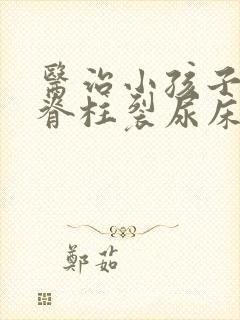 醫治小孩子
脊柱裂尿床
鄭茹